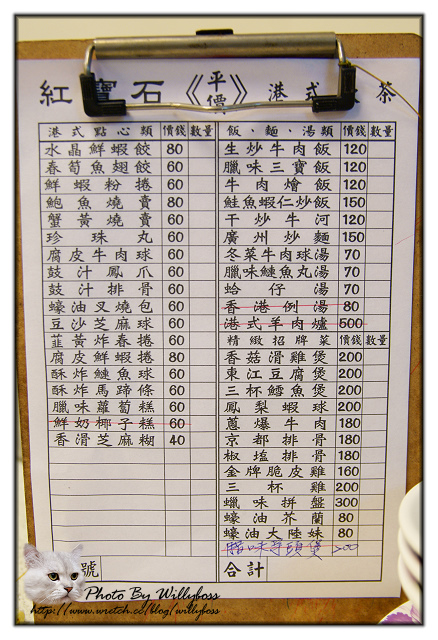 紅寶石《平價》港式飲茶
港式點心類 價錢 數量
水晶鮮蝦餃 80
春筍魚翅餃 60
鮮蝦粉捲 60
鮑魚燒賣 80
蟹黃燒賣 60
珍珠丸 60
腐皮牛肉球 60
鼓汁鳳爪 60
鼓汁排骨 60
蠔油叉燒包 60
豆沙芝麻球 60
韮黃炸春捲 60
腐皮鮮蝦捲 80
酥炸鯪魚球 60
酥炸馬蹄條 60
臘味蘿蔔糕 60
鮮奶椰子糕 60
香滑芝麻糊 40
號
飯、麵、湯類 價錢 數量
生炒牛肉飯 120
臘味三寶飯 120
牛肉燴飯 120
鮭魚蝦仁炒飯 150
干炒牛河 120
廣州炒麵 150
冬菜牛肉球湯 70
臘味鰱魚丸湯 70
蛤仔湯 70
香港例湯 80
港式羊肉爐 500
精緻招牌菜 價錢 數量
香菇滑雞煲 200
東江豆腐煲 200
三杯鱈魚煲 200
鳳梨蝦球 200
蔥爆牛肉 180
京都排骨 180
椒塩排骨 180
金牌脆皮雞 160
三杯雞 200
蠟味拼盤 300
蠔油芥蘭 80
蠔油大陸妹 80
臘味芋頭煲 200
合計
Photo By Willyboss
http://www.wretch.cc/blog/willyboss